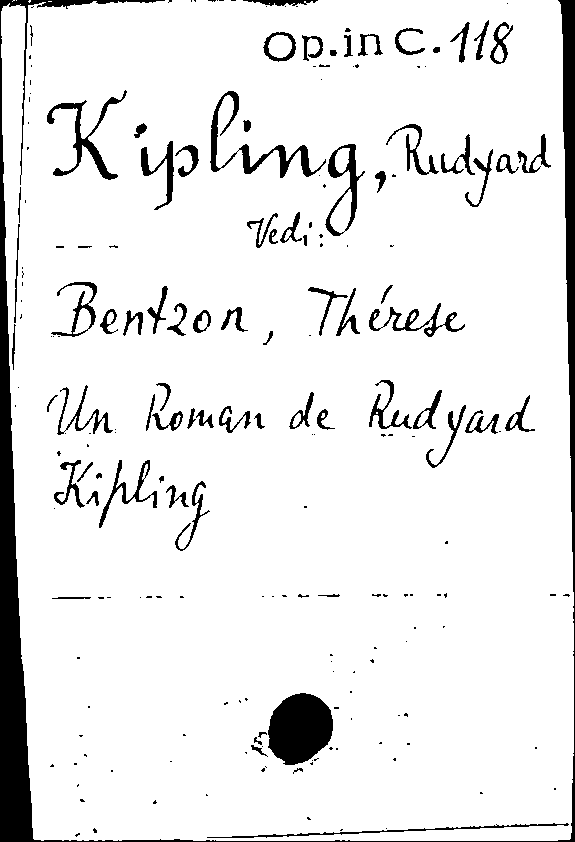 Op. in C. 118
Kipling, Rudyard
Vedi:
Bentzon, Thérese
Un Roman de Rudyard
Kipling